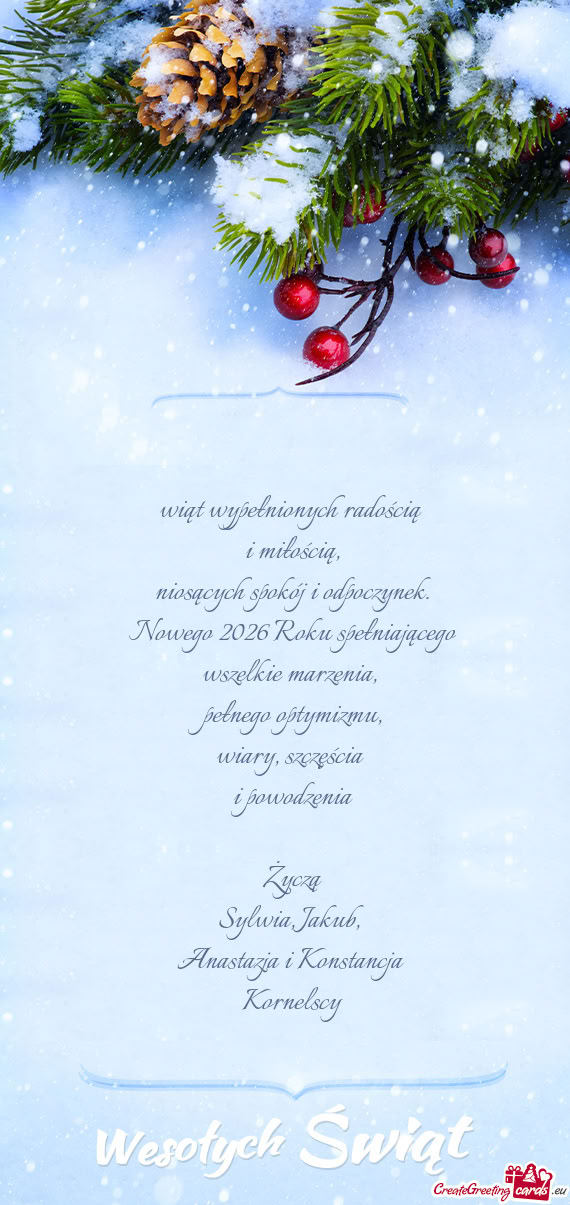 wiąt wypełnionych radością
i miłością,
niosących spokój i odpoczynek.
Nowego 2026 Roku spełniającego
wszelkie marzenia,
pełnego optymizmu,
wiary, szczęścia
i powodzenia
Życzą
Sylwia,Jakub,
Anastazja i Konstancja
Kornelscy
Wesołych Świąt
CreateGreetingcards.eu